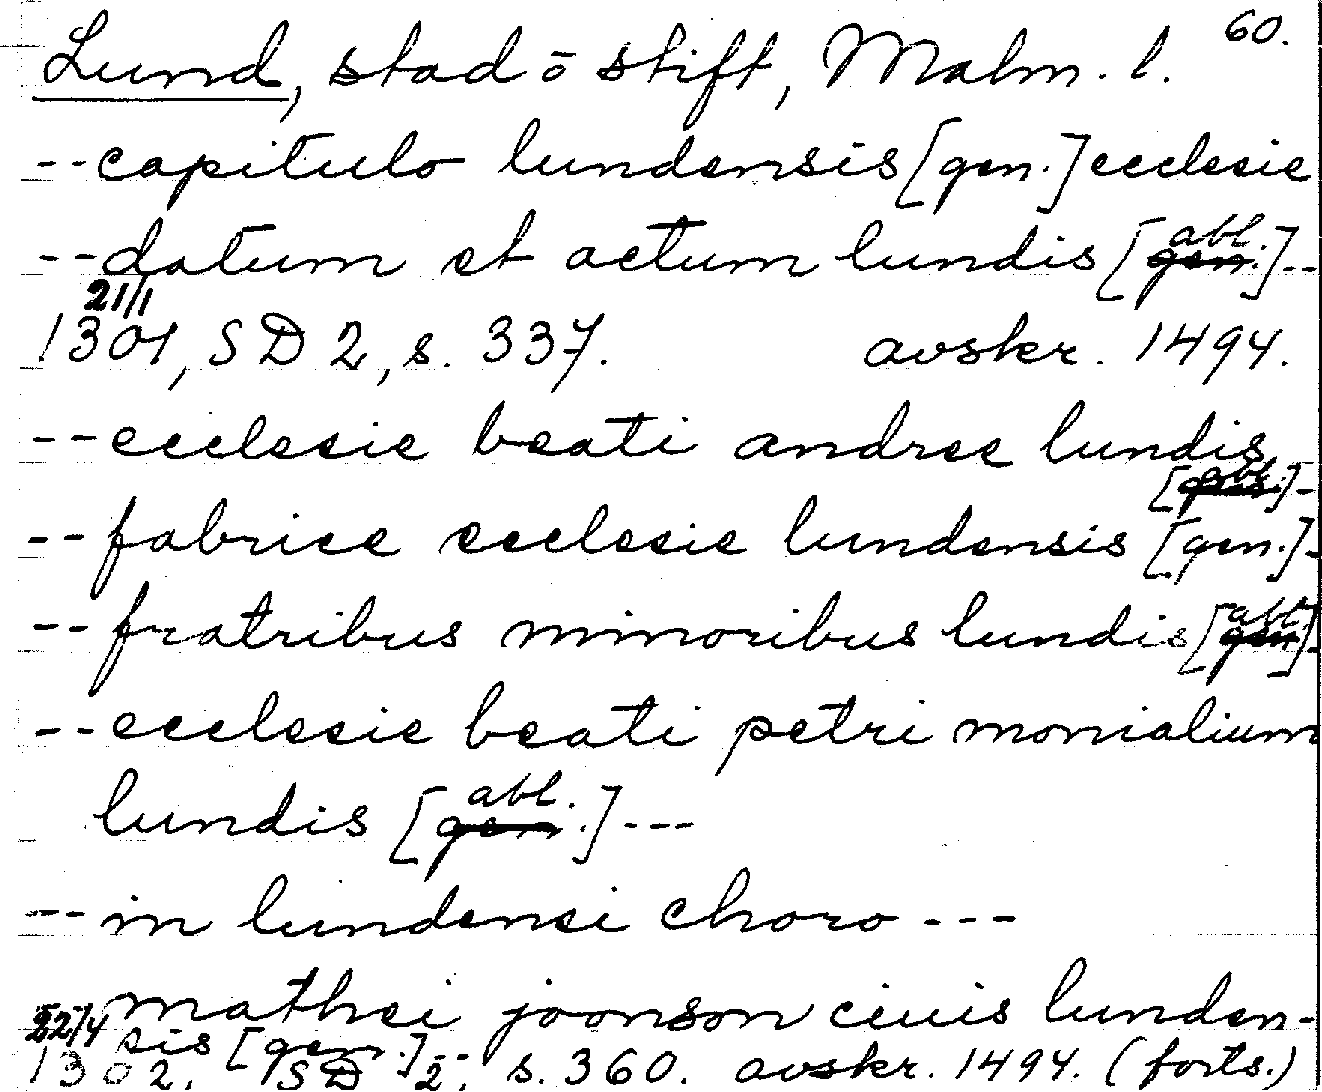 60.
Lund, stad o stift, Malm. l.
--capitulo lundensis [gen.] ecclesie
--datum et actum lundis [abl.]--
21/1
1301, SD 2, s. 337. avskr. 1494.
--ecclesie beati andree lundis
[abl.]-
--fabrice ecclesie lundensis [gen.]-
--fratribus minoribus lundis [abl.]-
--ecclesie beati petri monialium
lundis [abl.]---
--in lundensi choro---
mathei joonson ciuis lunden-
22/4 sis [gen.]--
1302, SD 2, s. 360. avskr. 1494. (forts.)